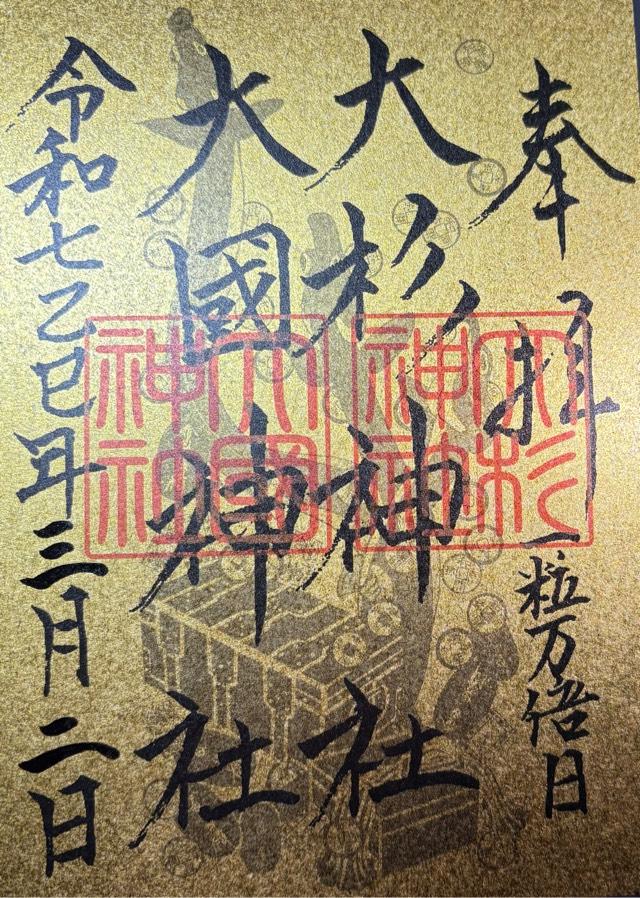 奉拝 一粒万倍日
大杉神社
大國神社
令和七乙巳年三月二日
大杉神社
大國神社